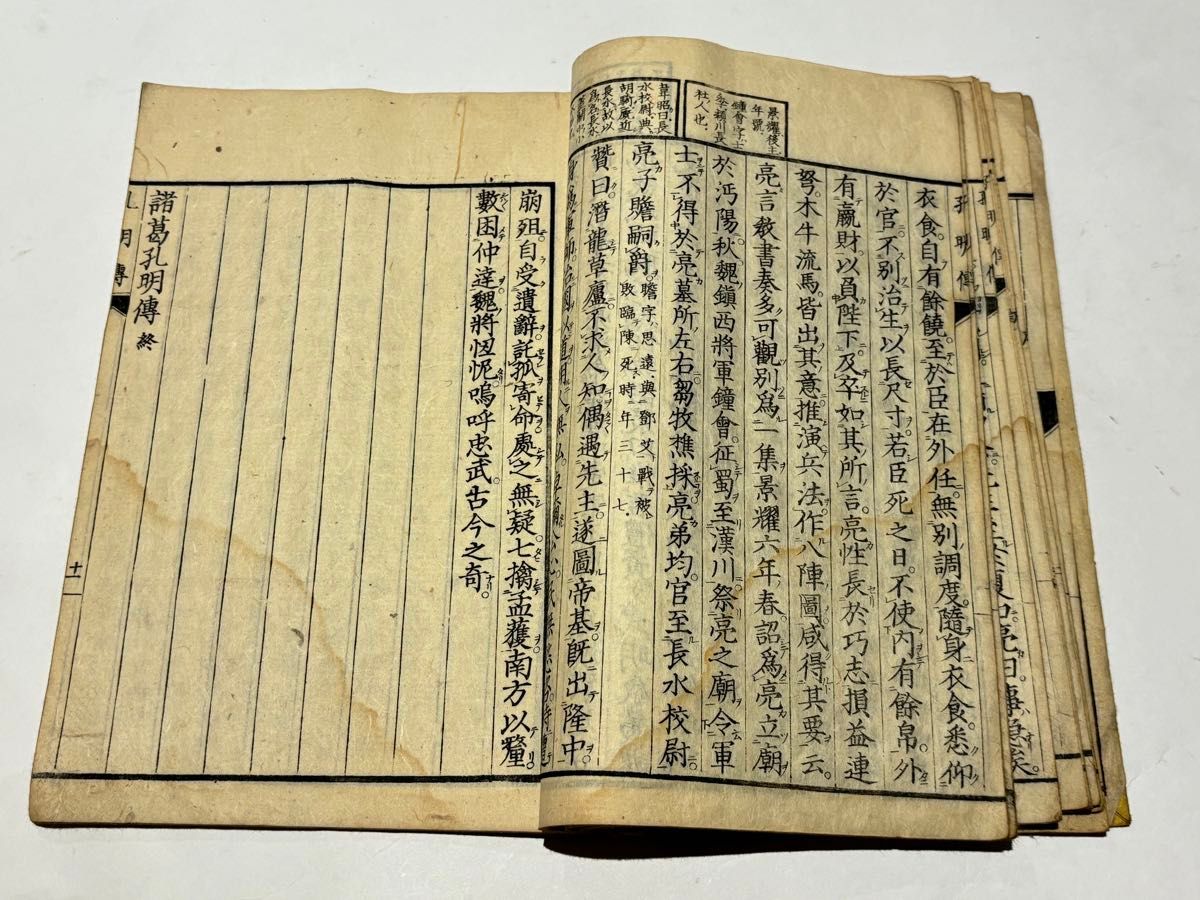 景耀後主
年號
鍾會字士
季潁川長
社人也
韋昭曰長
水校尉典
胡騎厩近
長水故以
爲名長水
衣食自有餘饒至於臣在外任無別調度隨身衣食悉仰
於官不別治生以長尺寸若臣死之日不使內有餘帛外
有贏財以負陛下及卒如其所言亮性長於巧志損益連
弩木牛流馬皆出其意推演兵法作八陣圖咸得其要云
亮言敎書奏多可觀別爲一集景耀六年春詔爲亮立廟
於沔陽秋魏鎭西將軍鐘會征蜀至漢川祭亮之廟令軍
士不得於亮墓所左右芻牧樵採亮弟均官至長水校尉
亮子瞻嗣爵
瞻字思遠與鄧艾戰被
敗臨陳死時年三十七
贊曰潛龍草廬不求人知偶遇先主遂圖帝基旣出隆中
崩殂自受遺辭託孤寄命處之無疑七擒孟獲南方以釐
數困仲達魏將恇怩嗚呼忠武古今之奇
諸葛孔明傳終
孔明傳
十一
孔明傳
孔明傳